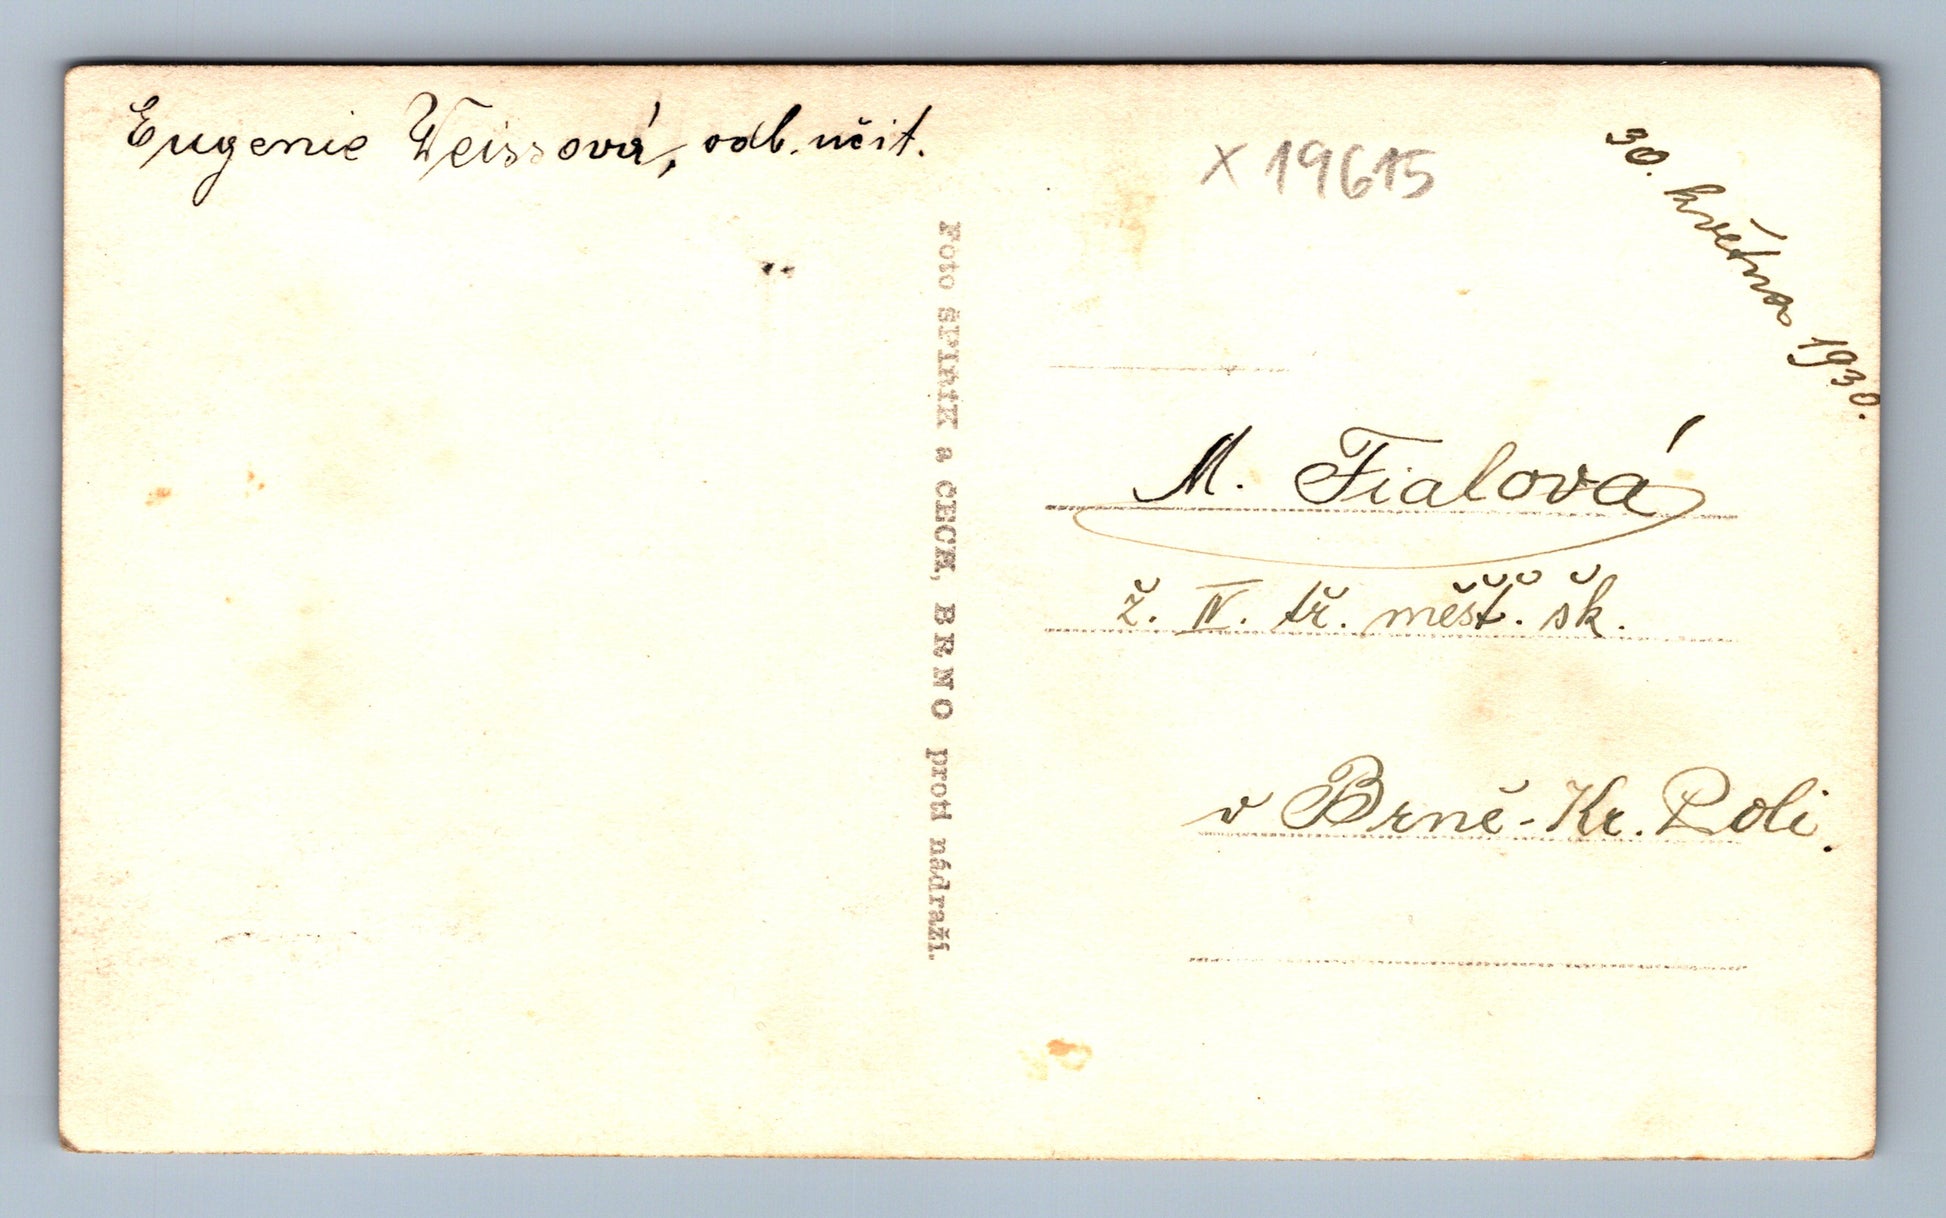 Eugenie Weissová, odb. učit.
x 19615
30. května 1930.
Foto ŠPINIK a ČECH, BRNO proti nádraží.
M. Fialová
ž. IV. tř. měšť. šk.
v Brně - Kr. Poli.